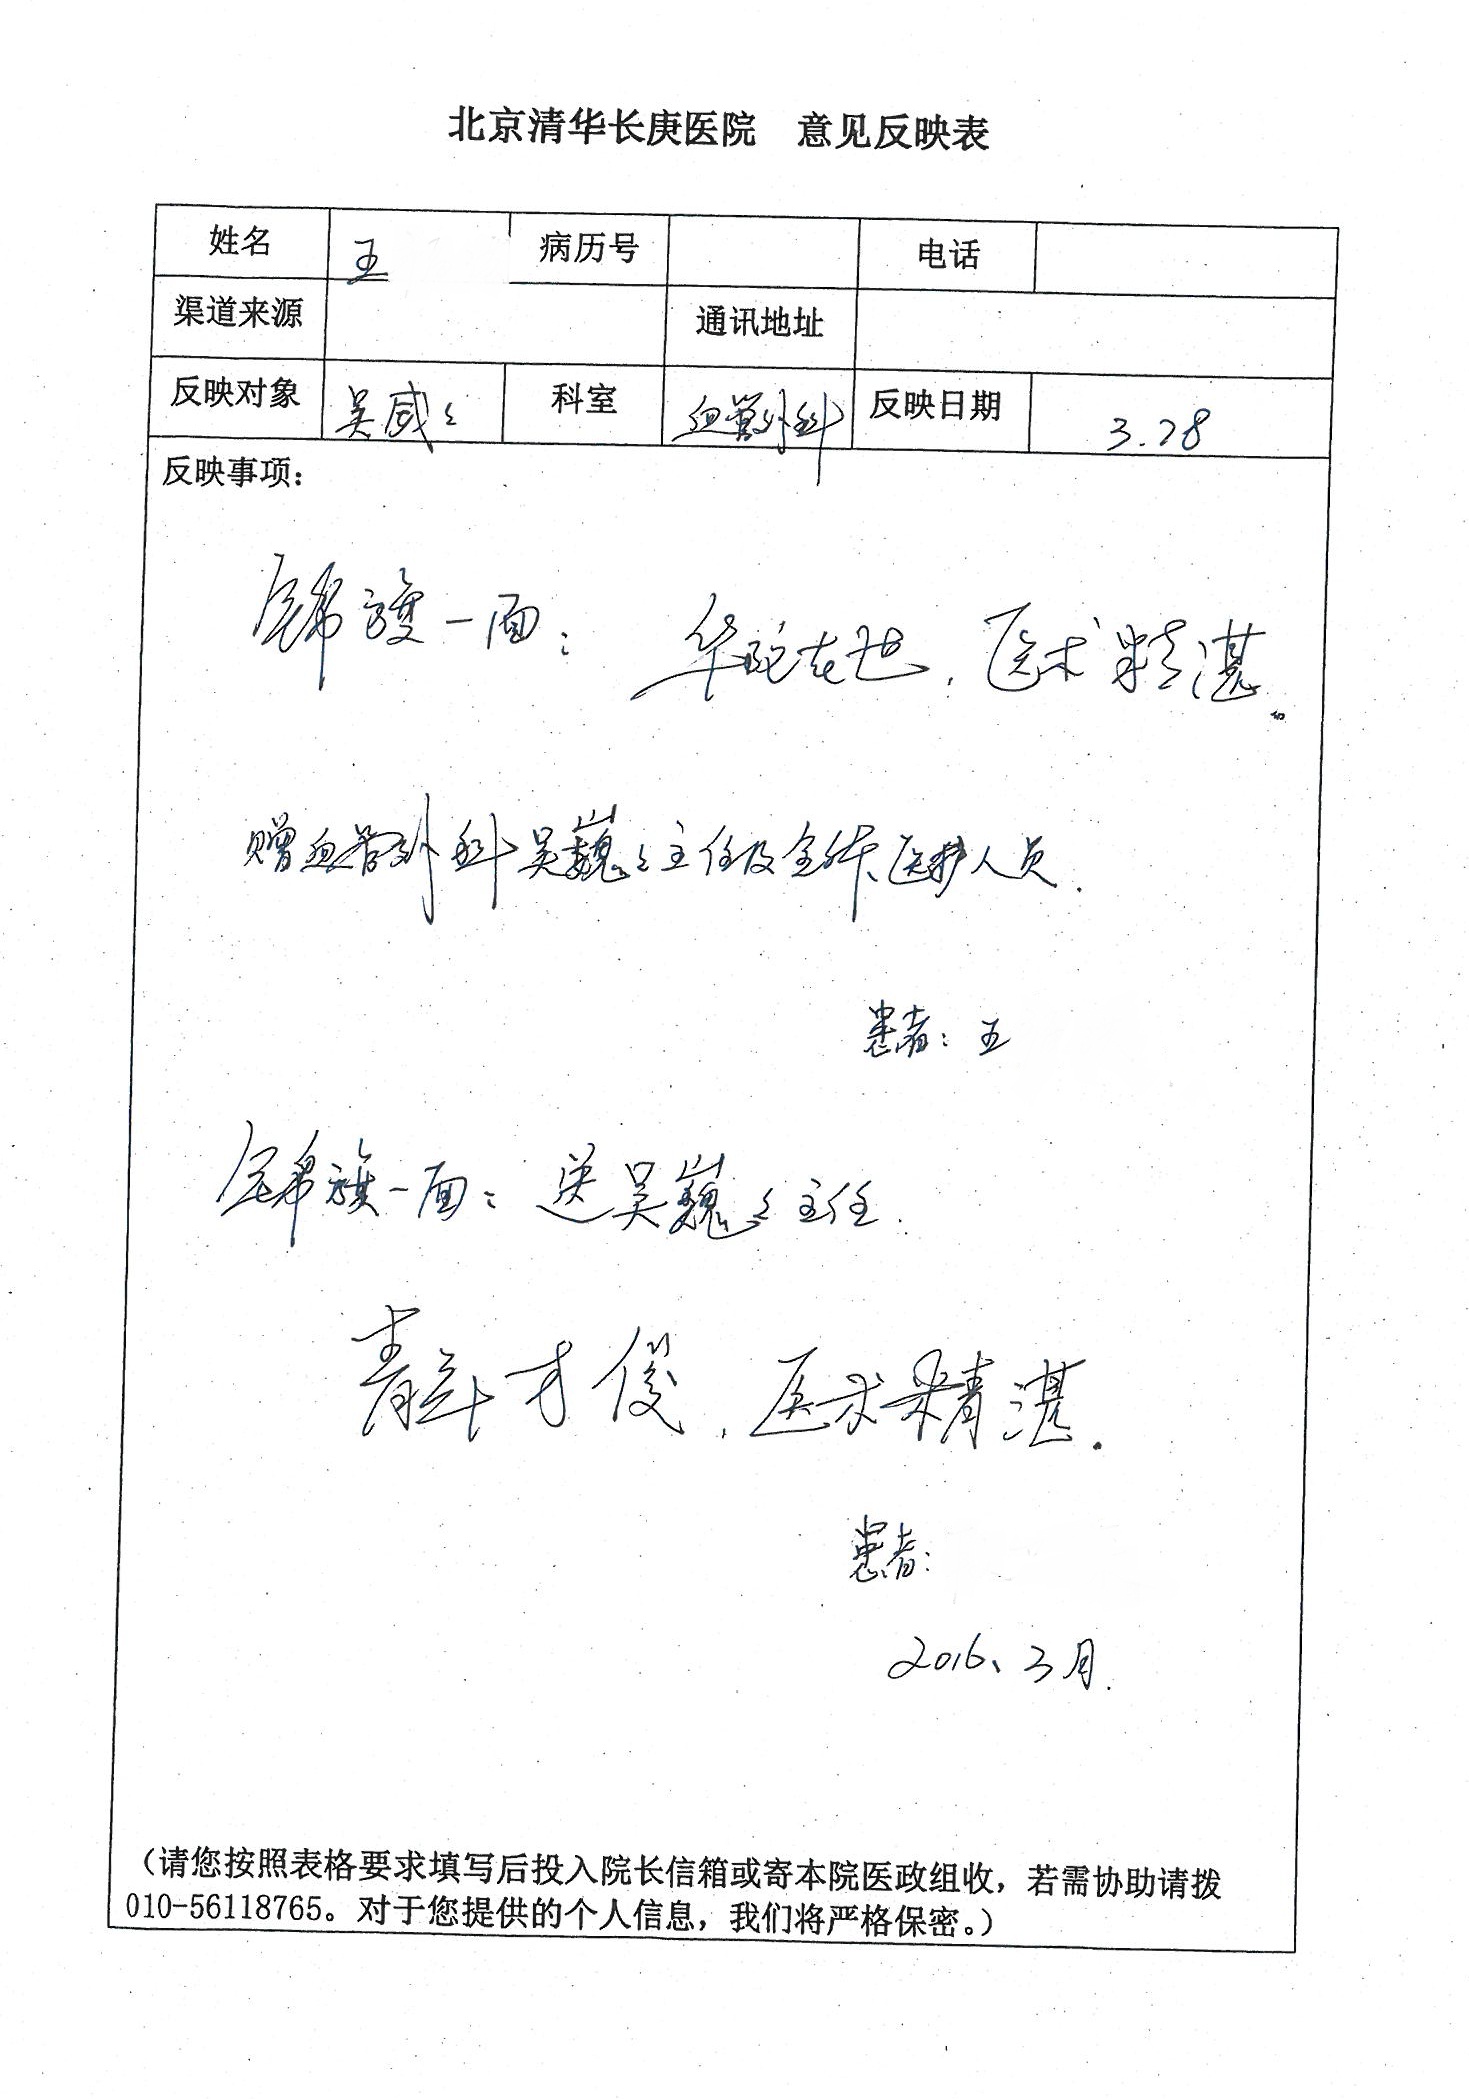 北京清华长庚医院 意见反映表
姓名 王 病历号 电话
渠道来源 通讯地址
反映对象 吴威々 科室 血管外科 反映日期 3.28
反映事项：
锦旗一面： 华佗在世，医术精湛。
赠血管外科吴巍々主任及全体医护人员.
患者：王
锦旗一面：送吴巍々主任.
青年才俊，医术精湛.
患者：
2016、3月.
（请您按照表格要求填写后投入院长信箱或寄本院医政组收，若需协助请拨
010-56118765。对于您提供的个人信息，我们将严格保密。）